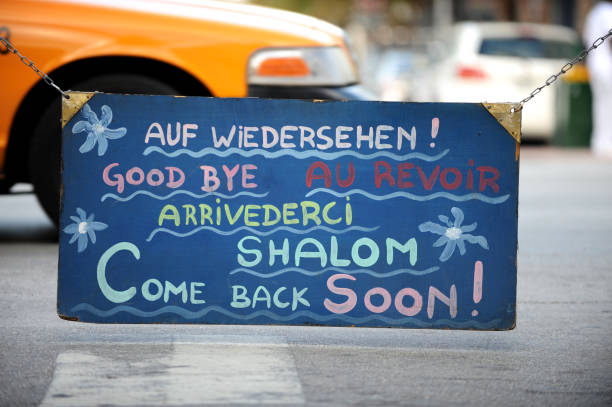 AUF WIEDERSEHEN!
GOOD BYE AU REVOIR
ARRIVEDERCI
SHALOM
COME BACK SOON!